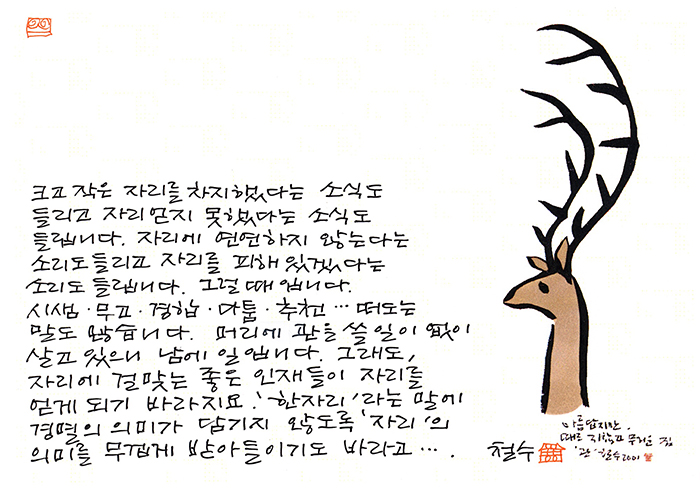 크고 작은 자리를 차지했다는 소식도
들리고 자리얻지 못했다는 소식도
들립니다. 자리에 연연하지 않는다는
소리도들리고 자리를 피해 있겠다는
소리도 들립니다. 그럴 때 입니다.
시샘·무고·경합·다툼·추천… 떠도는
말도 많습니다. 머리에 관을 쓸 일이 없이
살고 있으니 남에 일입니다. 그래도,
자리에 걸맞는 좋은 인재들이 자리를
얻게 되기 바라지요. '한자리'라는 말에
경멸의 의미가 담기지 않도록 '자리'의
의미를 무겁게 받아들이기도 바라고….
철수
아름답지만.
때로 무거운 짐
'관' 철수2001